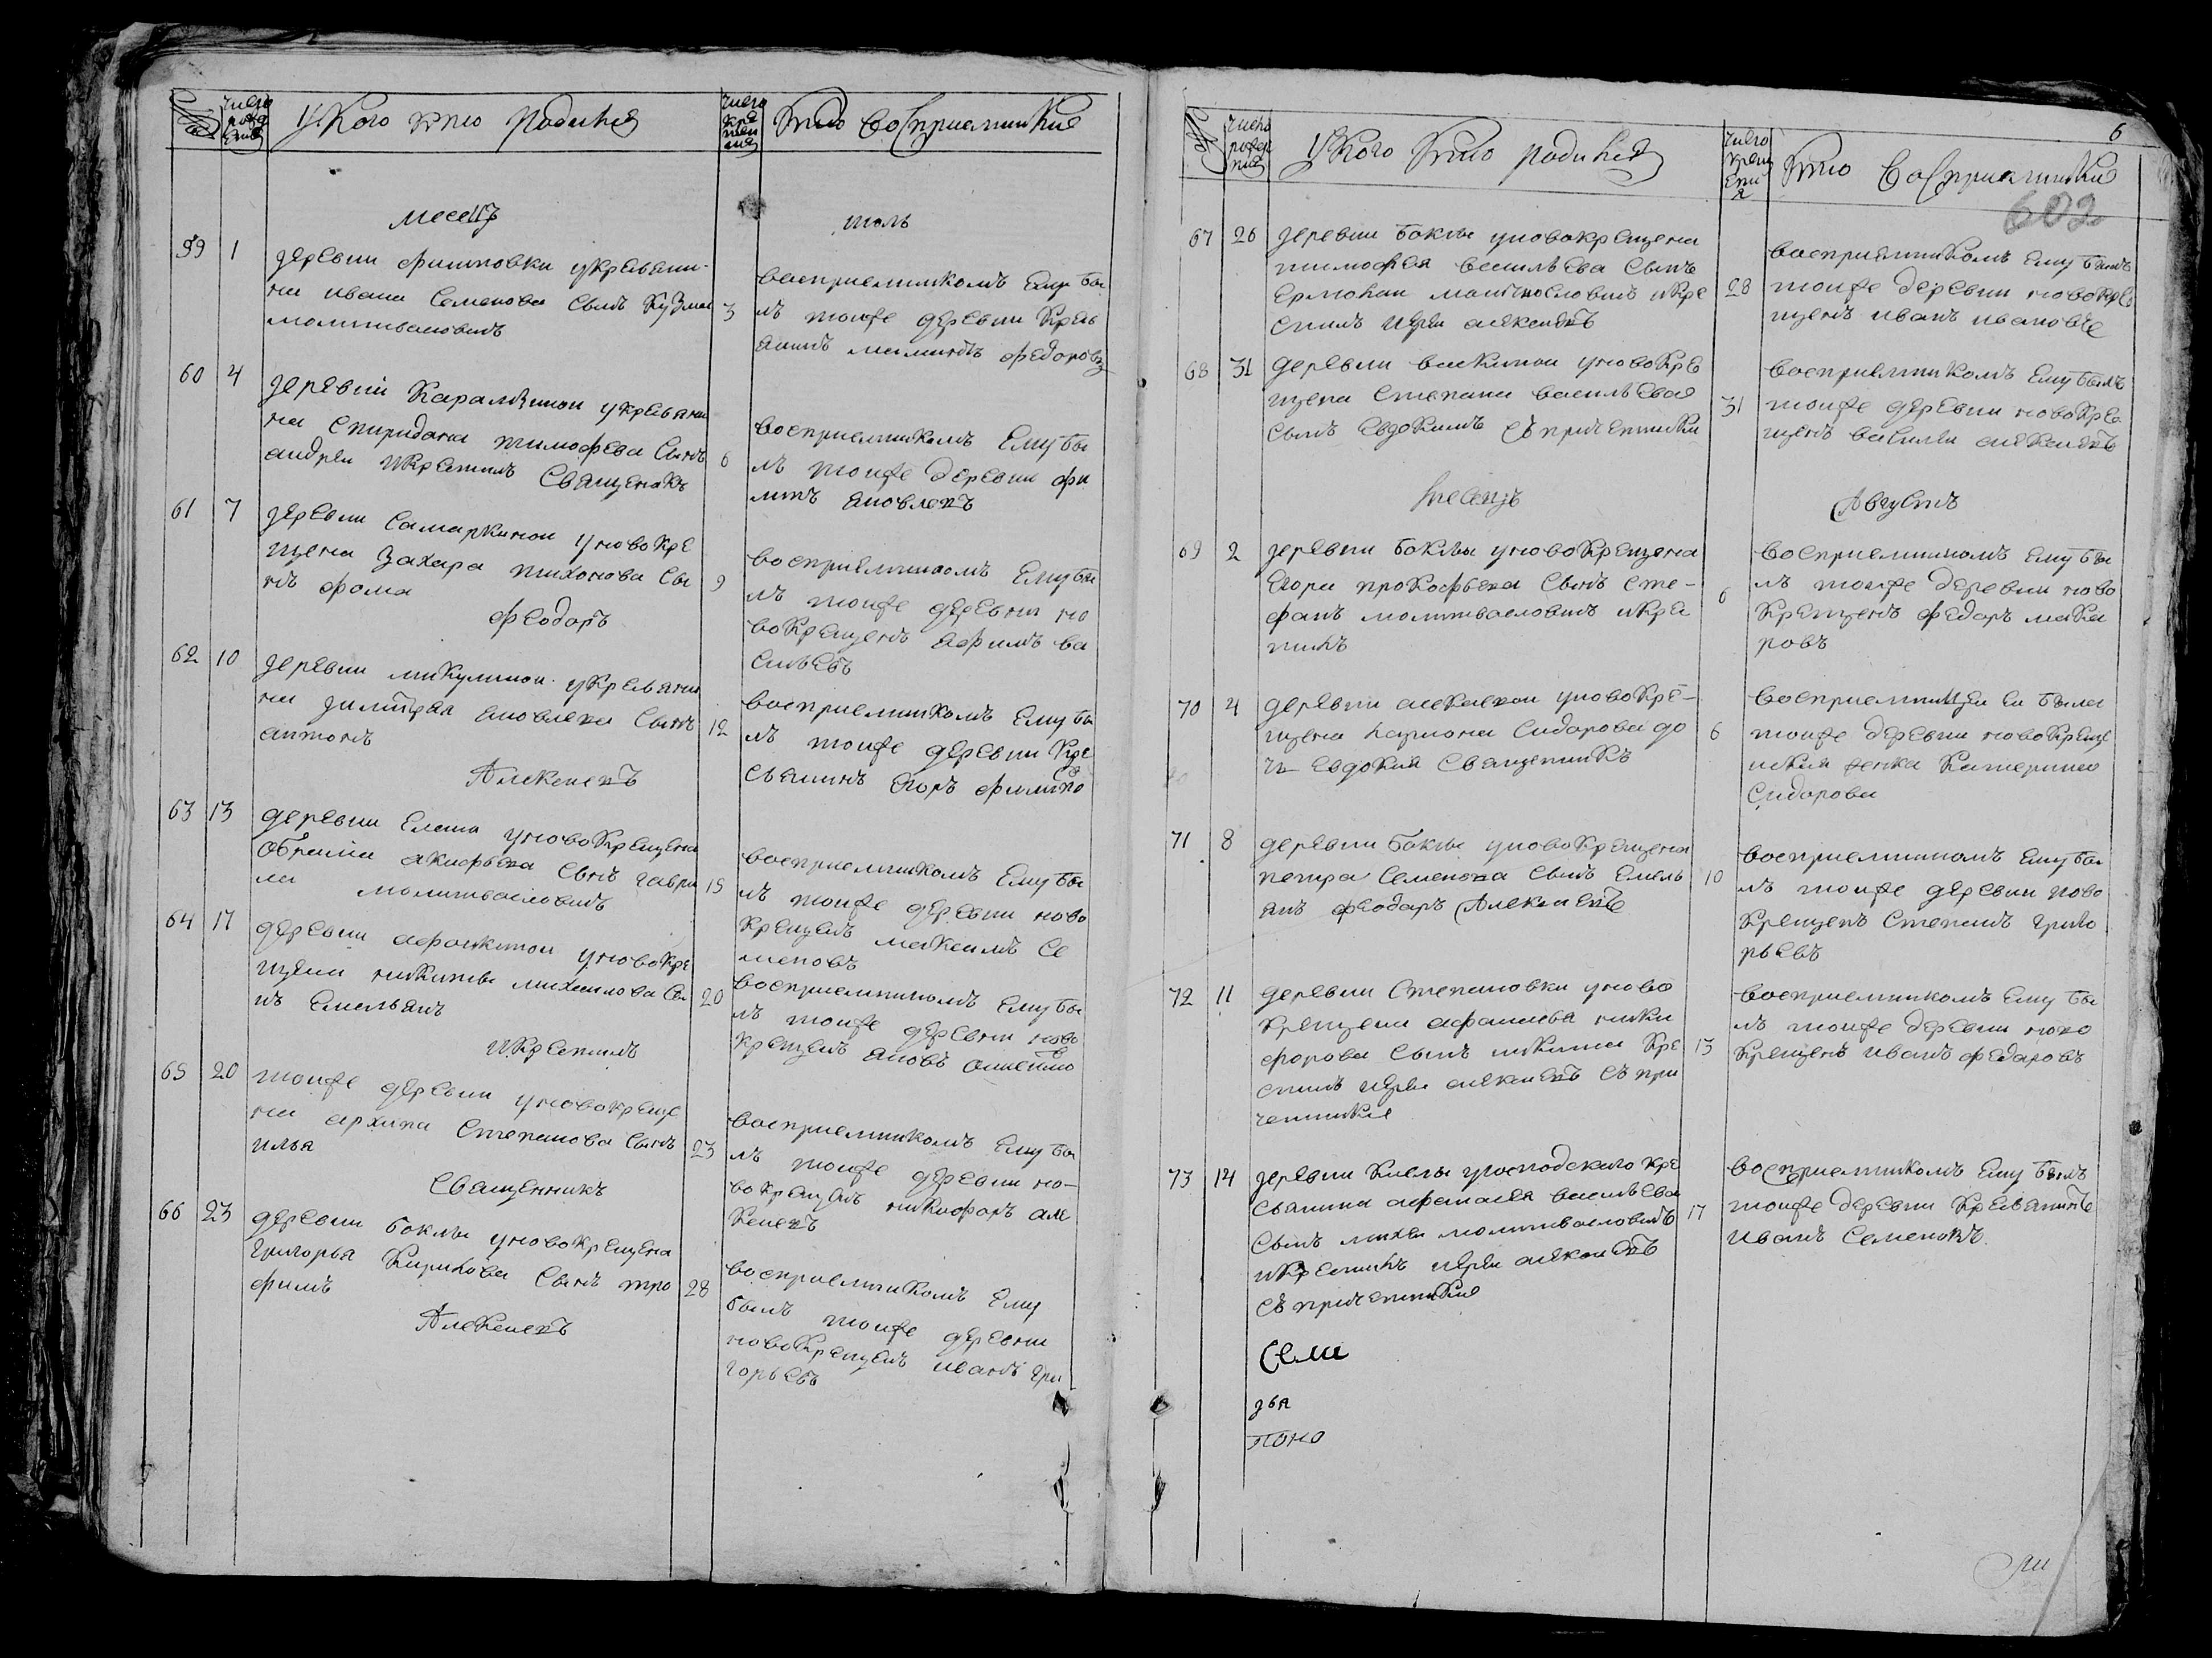 число рождения
У кого кто родился
число крещения
Кто восприемники
месецъ
июль
59 1 деревни филиповки укресьяни-
на ивана Семенова сынъ Кузма
молитвасловилъ
3 восприемникомъ Ему бы
лъ тоиже деревни крес
янинъ федоровъ
60 4 деревни Карамзинои укресьяни
на спиридона тимофеева Сынъ
андреи икрестилъ Священикъ
6 восприемникомъ Ему бы
лъ тоиже деревни фи
липъ яковлевъ
61 7 деревни Самаркинои уновокре
щена Захара тихонова Сы
нъ фома
феодоръ
9 восприемникомъ Ему бы
лъ тоиже деревни но
вокрещенъ Ефимъ ва
сильевъ
62 10 деревни микулинои укресьяни
на димитрея яковлева Сынъ
антонъ
Алексеевъ
12 восприемникомъ Ему бы
лъ тоиже деревни Кре
сьянинъ Егоръ филипо
63 13 деревни уновокрещена
акифьева Сынъ гаври
ла молитвасловилъ
15 восприемникомъ Ему бы
лъ тоиже деревни ново
крещенъ максимъ Се
меновъ
64 17 деревни афонкинои уновокре
щена никиты михаилова Сы
нъ Емельянъ
икрестилъ
20 восприемникомъ Ему бы
лъ тоиже деревни ново
крещенъ яковъ
65 20 тоиже деревни уновокреще
на архипа Степанова Сынъ
илья
Священникъ
23 восприемникомъ Ему бы
лъ тоиже деревни но-
вокрещенъ никифоръ але
ксеевъ
66 23 деревни боклы уновокрещена
Григорья Кирилова Сынъ тро
фимъ
Алексеевъ
28 восприемникомъ Ему
былъ тоиже деревни
новокрещенъ иванъ гри
горьевъ
6
602
число рождения
У кого кто родился
число крещения
Кто восприемники
67 26 деревни боклы уновокрещена
тимофея васильева Сынъ
Ермолаи молитвословилъ икре
стилъ иереи алексеевъ
28 восприемникомъ Ему былъ
тоиже деревни новокре
щенъ иванъ ивановъ
68 31 деревни васкинои уновокре
щена Степана васильева
сынъ Евдокимъ съпричетники
31 восприемникомъ Ему былъ
тоиже деревни новокре
щенъ василеи алексеевъ
месецъ
Августъ
69 2 деревни боклы уновокрещена
Егора прокофьева Сынъ сте-
фанъ молитвасловилъ икрес
тилъ
6 восприемникомъ Ему бы
лъ тоиже деревни ново
крещенъ федоръ мака
ровъ
70 4 деревни уновокре-
щена лариона Сидорова до
чь Евдокия Священникъ
6 восприемницеи Еи была
тоиже деревни новокреще
нская женка Катерина
Сидорова
71 8 деревни боклы уновокрещена
петра Семенова Сынъ Емель
янъ феодоръ Алексеевъ
10 восприемникомъ Ему бы
лъ тоиже деревни ново
крещенъ Степанъ григо
рьевъ
72 11 деревни Степановки уново
крещена афанасья ники
форова Сынъ никита кре
стилъ иереи алексеевъ съпри
четники
13 восприемникомъ Ему бы
лъ тоиже деревни ново
крещенъ иванъ федоровъ
73 14 деревни Кислы угосподского кре
сьянина афанасея васильева
Сынъ михеи молитвасловилъ
икрестилъ иереи алексеевъ
съпричетники
17 восприемникомъ Ему былъ
тоиже деревни Кресьянинъ
иванъ Семеновъ
Села
дья
поно